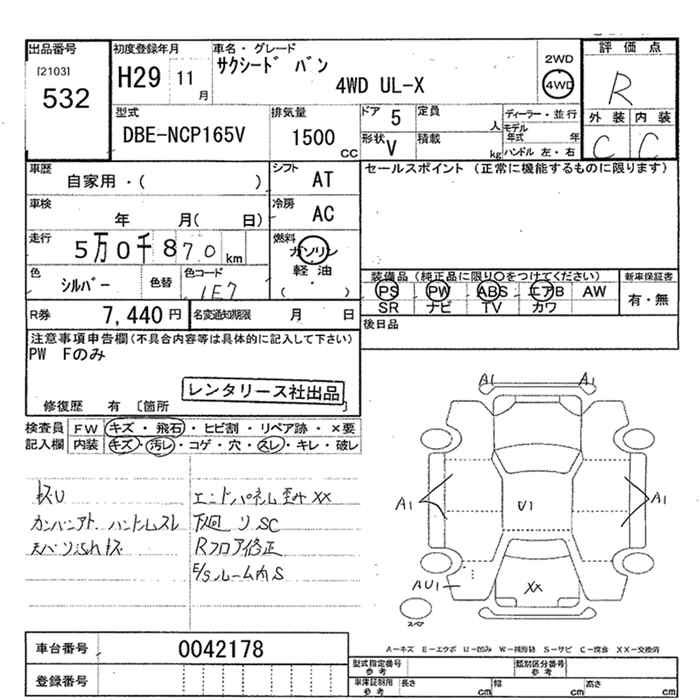 出品番号
[2103]
532
初度登録年月
H29 11月
車名・グレード
サクシード バン
4WD UL-X
2WD
4WD
評価点
R
外装 内装
C C
型式
DBE-NCP165V
排気量
1500 CC
ドア 5
定員 人
形状 V
積載 kg
ディーラー・並行
モデル年式 年
ハンドル 左・右
車歴
自家用・( )
シフト AT
車検
年 月( 日)
冷房 AC
走行
5万0千870 km
燃料
ガソリン
軽油
( )
色
シルバー
色替
色コード
1E7
R券 7,440円
名変通知期限 月 日
セールスポイント (正常に機能するものに限ります)
装備品 (純正品に限り○をつけてください)
PS PW ABS エアB AW
SR ナビ TV カワ
新車保証書
有・無
後日品
注意事項申告欄(不具合内容等は具体的に記入して下さい)
PW Fのみ
レンタリース社出品
修復歴 有 [箇所 ]
検査員記入欄
FW キズ・飛石・ヒビ割・リペア跡・×要
内装 キズ・汚レ・コゲ・穴・スレ・キレ・破レ
エンドパネル歪み XX
下廻り SC
Rフロア修正
E/Sルーム内S
A1 A1
A1 U1 A1
AU1 XX
A-キズ E-エクボ U-凹み W-補修跡 S-サビ C-腐食 XX-交換済
車台番号 0042178
登録番号
型式指定番号 参考
類別区分番号 参考
車庫証明用 参考
長さ cm 幅 cm 高さ cm